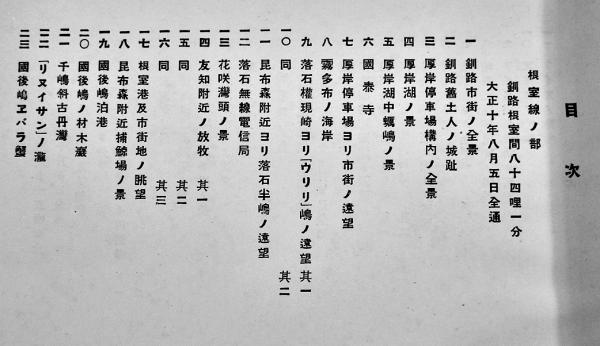 目次
根室線ノ部
釧路根室間八十四哩一分
大正十年八月五日全通
一 釧路市街ノ全景
二 釧路舊土人ノ城趾
三 厚岸停車場構內ノ全景
四 厚岸湖ノ景
五 厚岸湖中蠣嶋ノ景
六 國泰寺
七 厚岸停車場ヨリ市街ノ遠望
八 霧多布ノ海岸
九 落石權現崎ヨリ「ウリリ」嶋ノ遠望 其一
一〇 同 其二
一一 昆布森附近ヨリ落石半嶋ノ遠望
一二 落石無線電信局
一三 花咲灣頭ノ景
一四 友知附近ノ放牧 其一
一五 同 其二
一六 同 其三
一七 根室港及市街地ノ眺望
一八 昆布森附近捕鯨場ノ景
一九 國後嶋泊港
二〇 國後嶋ノ材木巖
二一 千嶋斜古丹灣
二二 「リヌイサン」ノ瀧
二三 國後嶋ヱバラ蟹